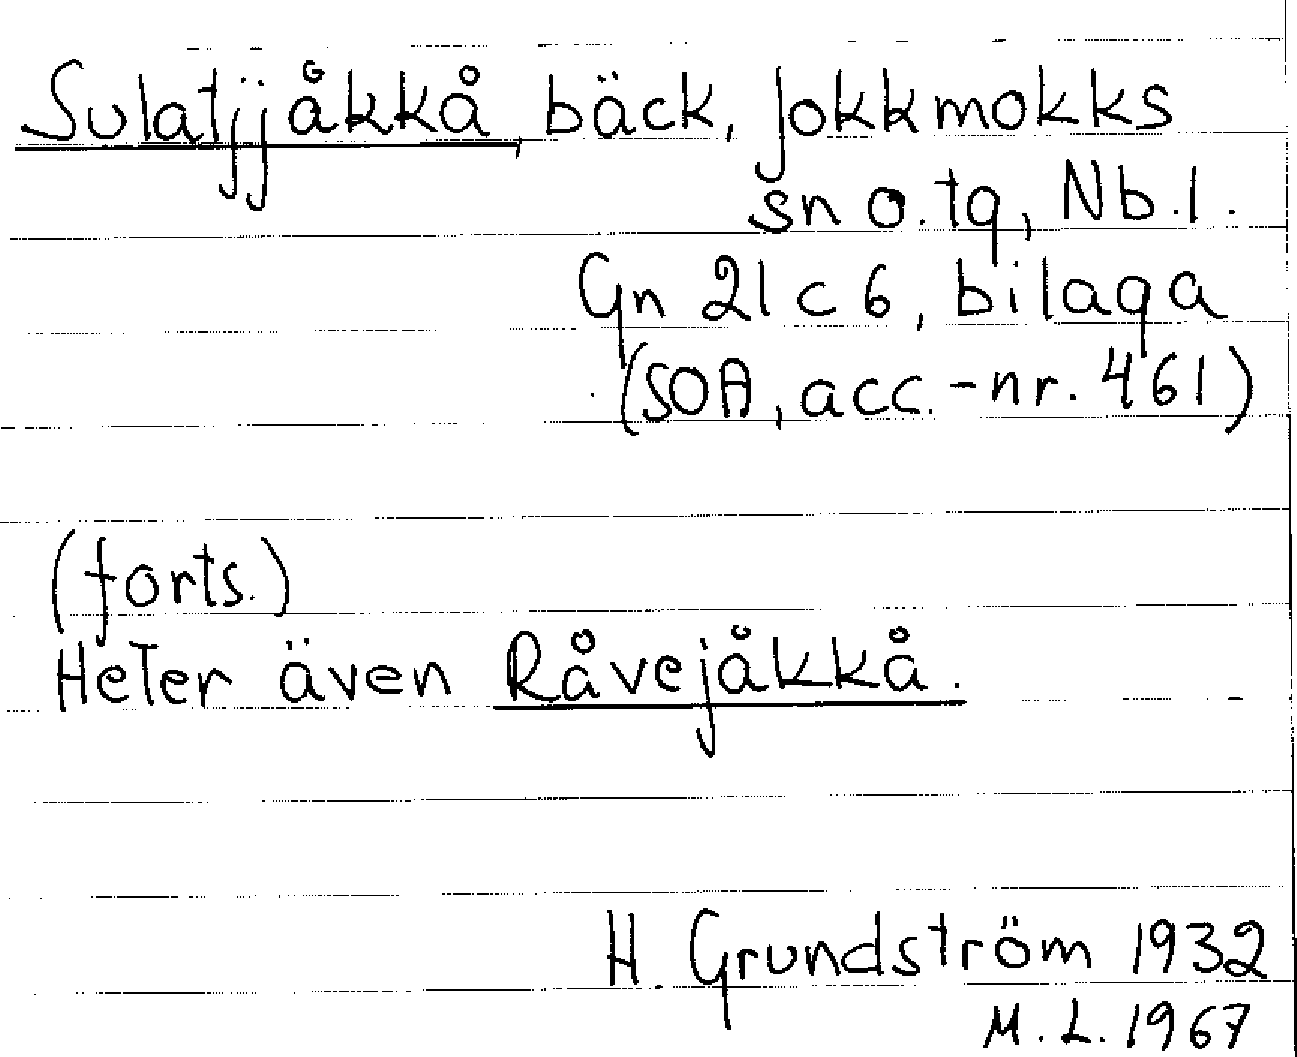 Sulatjjåkkå, bäck, Jokkmokks
sn o. tg, Nb. l.
Gn 21 c 6, bilaga
(SOA, acc.-nr. 461)
(forts.)
Heter även Råvejåkkå.
H. Grundström 1932
M. L. 1967